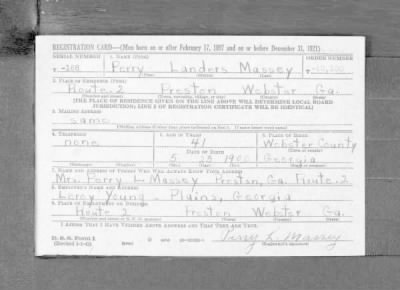 REGISTRATION CARD—(Men born on or after February 17, 1897 and on or before December 31, 1921)
SERIAL NUMBER 1. NAME (Print) ORDER NUMBER
Perry Landers Massey
(First) (Middle) (Last)
2. PLACE OF RESIDENCE (Print)
Route 2 Preston Webster Ga.
(Number and street) (Town, township, village, or city) (County) (State)
[THE PLACE OF RESIDENCE GIVEN ON THE LINE ABOVE WILL DETERMINE LOCAL BOARD
JURISDICTION; LINE 2 OF REGISTRATION CERTIFICATE WILL BE IDENTICAL]
3. MAILING ADDRESS
same
[Mailing address if other than place indicated on line 2. If same insert word same]
4. TELEPHONE 5. AGE IN YEARS 6. PLACE OF BIRTH
none 41 Webster County
DATE OF BIRTH (Town or county)
5 23 1900 Georgia
(Mo.) (Day) (Yr.) (State or country)
7. NAME AND ADDRESS OF PERSON WHO WILL ALWAYS KNOW YOUR ADDRESS
Mrs. Perry L. Massey Preston, Ga. Route 2
8. EMPLOYER'S NAME AND ADDRESS
Leroy Young - Plains, Georgia
9. PLACE OF EMPLOYMENT OR BUSINESS
Route 2 Preston Webster Ga.
(Number and street or R. F. D. number) (Town) (County) (State)
I AFFIRM THAT I HAVE VERIFIED ABOVE ANSWERS AND THAT THEY ARE TRUE.
D. S. S. Form 1
Perry L. Massey
(Registrant's signature)